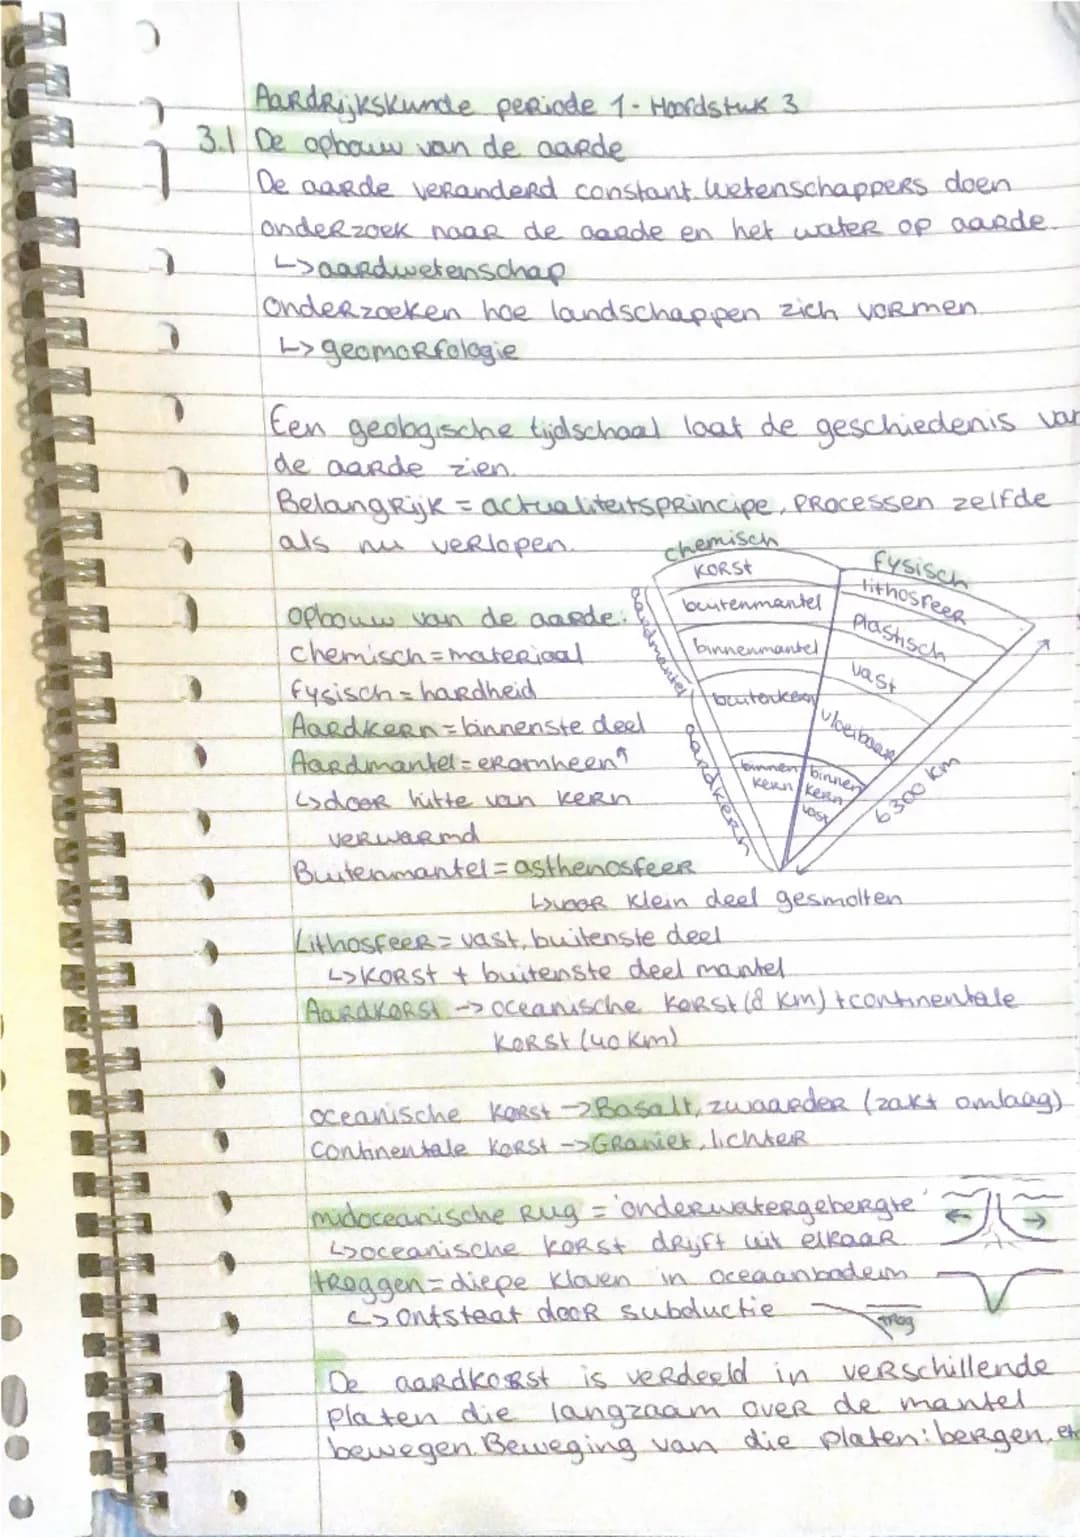 Aardrijkskunde periode 1 - Hoofdstuk 3
3.1 De opbouw van de aarde
De aarde veranderd constant. Wetenschappers doen
onderzoek naar de aarde en het water op aarde.
↳ aardwetenschap
Onderzoeken hoe landschappen zich vormen
↳ geomorfologie
Een geologische tijdschaal laat de geschiedenis van
de aarde zien.
Belangrijk = actualiteitsprincipe, processen zelfde
als nu verlopen.
opbouw van de aarde:
chemisch = materiaal
fysisch = hardheid
Aardkern = binnenste deel
Aardmantel = eromheen ↑
↳ door hitte van kern
verwarmd
Buitenmantel = asthenosfeer
↳ voor klein deel gesmolten
chemisch
korst
buitenmantel
binnenmantel
buitenkern
binnen
kern
aardmantel
aardkern
fysisch
lithosfeer
plastisch
vast
vloeibaar
binnen
kern
vast
6300 km
Lithosfeer = vast, buitenste deel
↳ korst + buitenste deel mantel
Aardkorst → oceanische korst (8 km) + continentale
korst (40 km)
oceanische korst → Basalt, zwaarder (zakt omlaag)
Continentale korst → Graniet, lichter
midoceanische rug = 'onderwatergebergte'
↳ oceanische korst drijft uit elkaar
troggen = diepe kloven in oceaanbodem
↳ ontstaat door subductie
trog
De aardkorst is verdeeld in verschillende
platen die langzaam over de mantel
bewegen. Beweging van die platen: bergen, etc